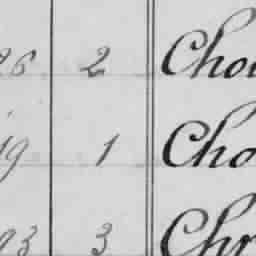 26 2 Choi
19 1 Cho
93 3 Chr